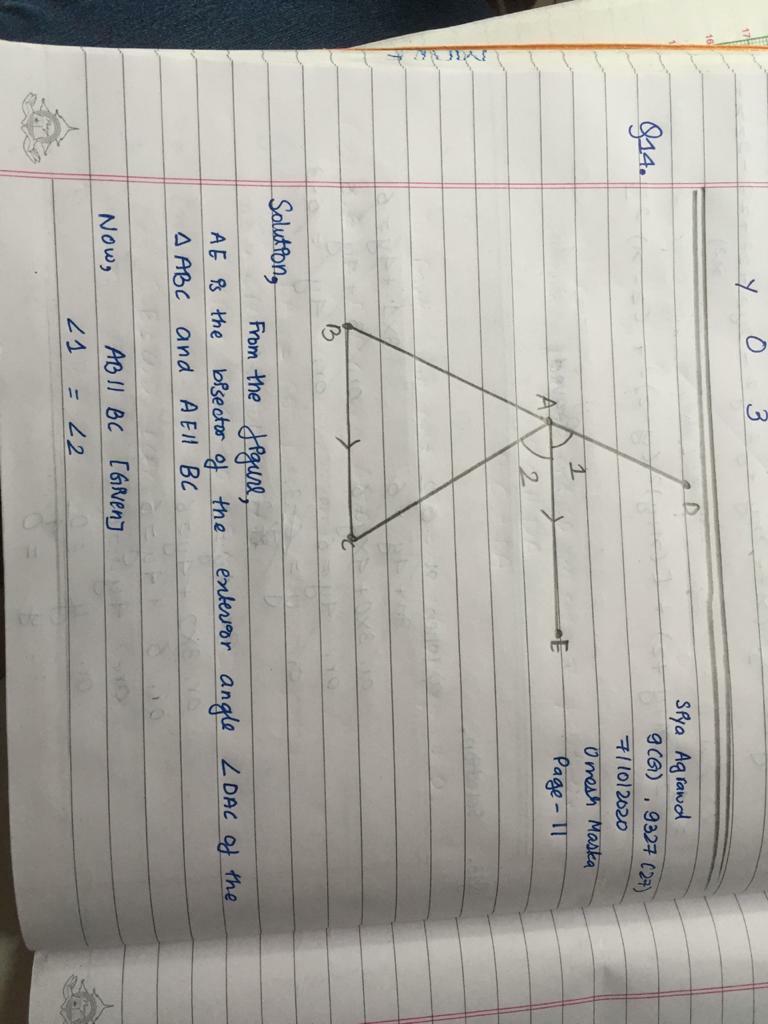 Y 0 3
Spya Agrawal
9(G), 9327 (27)
7/10/2020
Umesh Maska
Page - 11
Q14.
D
1
A
2
E
B
C
Solution,
From the figure,
AE is the bisector of the exterior angle ∠DAC of the
∆ABC and AE || BC
Now, AB || BC [Given]
∠1 = ∠2
16
17